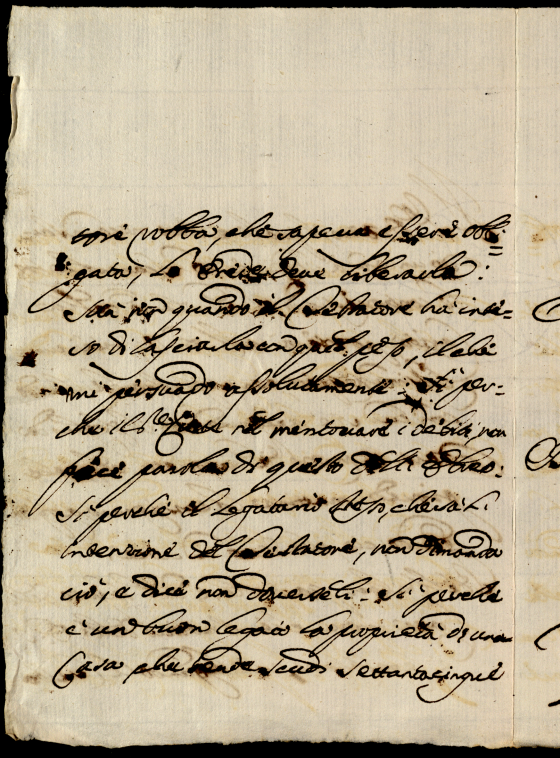 tore robba, che sapeua essere obli=
gata, lo Erede deue liberarla:
Ma non quando il Testatore ha inte=
so di lasciarla con quel peso, il che
mi persuado assolutamente: Sì per=
che il Sr. nel mentouare i debiti, non
fece parola di questo delli Ebreo:
Sì perche il Legatario stesso, che sà l'
intenzione del Testatore, non dimanda
ciò, e dice non douerseli: Sì perche
è un buon legato la proprietà di una
Casa che rende scudi settantacinque